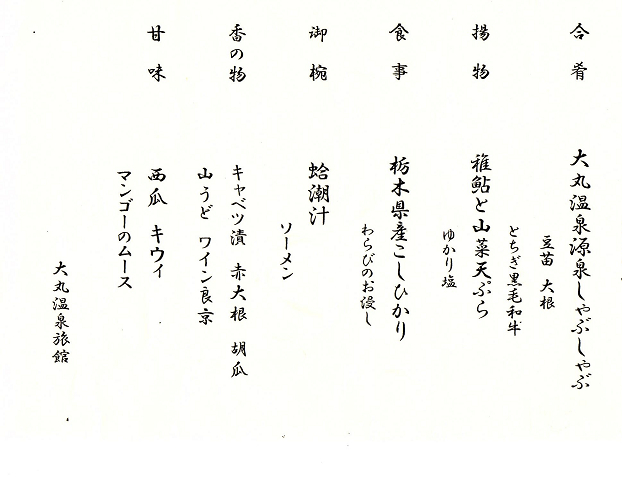 合肴
大丸温泉源泉しゃぶしゃぶ
豆苗 大根
とちぎ黒毛和牛
揚物
稚鮎と山菜天ぷら
ゆかり塩
食事
栃木県産こしひかり
わらびのお浸し
御椀
蛤潮汁
ソーメン
香の物
キャベツ漬 赤大根 胡瓜
山うど ワイン良京
甘味
西瓜 キウィ
マンゴーのムース
大丸温泉旅館